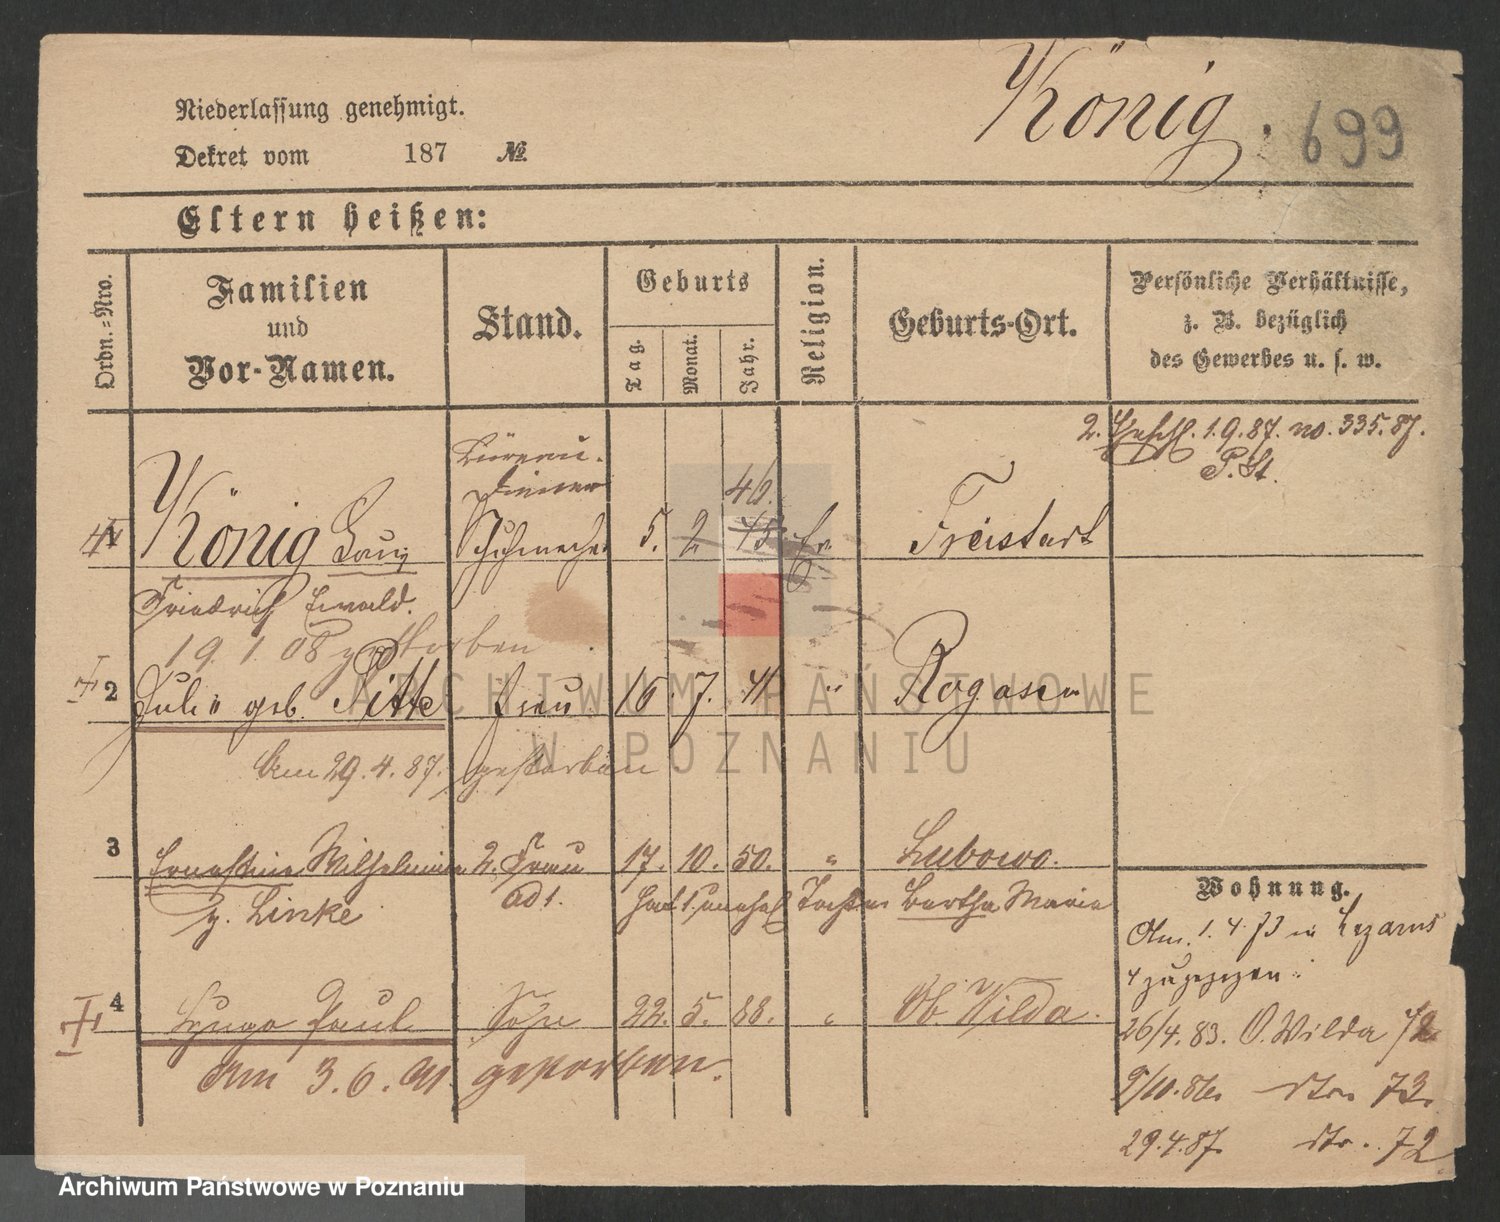 König.
699
Niederlassung genehmigt.
Dekret vom 187 №
Eltern heißen:
Ordn.=Nro.
Familien
und
Vor-Namen.
Stand.
Geburts
Tag.
Monat.
Jahr.
Religion.
Geburts-Ort.
Persönliche Verhältnisse,
z. B. bezüglich
des Gewerbes u. s. w.
2. 1.9.87. no. 335.87.
P. St.
Büreau-
diener
46.
König Schuhmacher 5. 2 45 Ev Freistadt
Friedrich Ewald.
19. 1. 08 gestorben
2 Julie geb. Pitte Frau 16. 7. 41 " Rogasen
Am 29. 4. 87. gestorben
3 Ernestine Wilhelmine 2. Frau 17. 10. 50. " Lubowo.
g. Linke ad 1. hat 1 unehel Tochter Bertha Marie
4 Hugo Paul Sohn 22. 5. 88. " Ob. Wilda.
Am 3. 6. 91. gestorben.
Wohnung.
Am. 1. 4. 73 in Lazarus
zugezogen.
26/4. 83. O. Wilda 72
9/10. 86. dto. 73.
29.4.87. dto. 72
ARCHIWUM PAŃSTWOWE
W POZNANIU
Archiwum Państwowe w Poznaniu